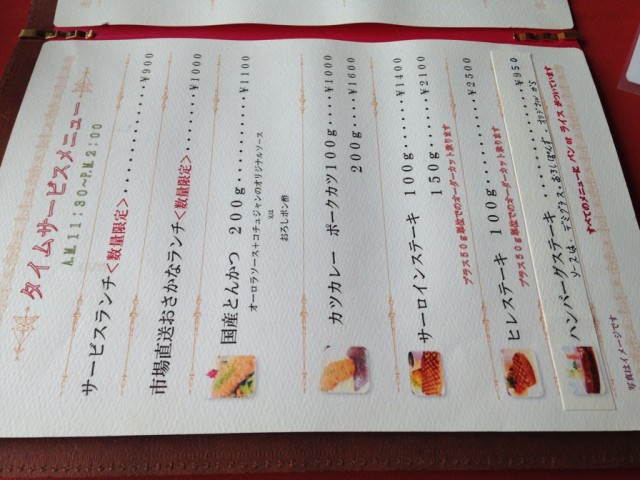 タイムサービスメニュー
A.M.11:30~P.M.2:00
サービスランチ<数量限定>............¥900
市場直送おさかなランチ<数量限定>......¥1000
国産とんかつ 200g............¥1100
オーロラソース+コチュジャンのオリジナルソース
又は
おろしポン酢
カツカレー ポークカツ100g....¥1000
200g....¥1600
サーロインステーキ 100g......¥1400
150g......¥2100
プラス50g単位でのオーダーカット承ります
ヒレステーキ 100g............¥2500
プラス50g単位でのオーダーカット承ります
ハンバーグステーキ............¥950
ソースは・デミグラス・おろしぽんず
すべてのメニューに パン or ライス がついています
写真はイメージです